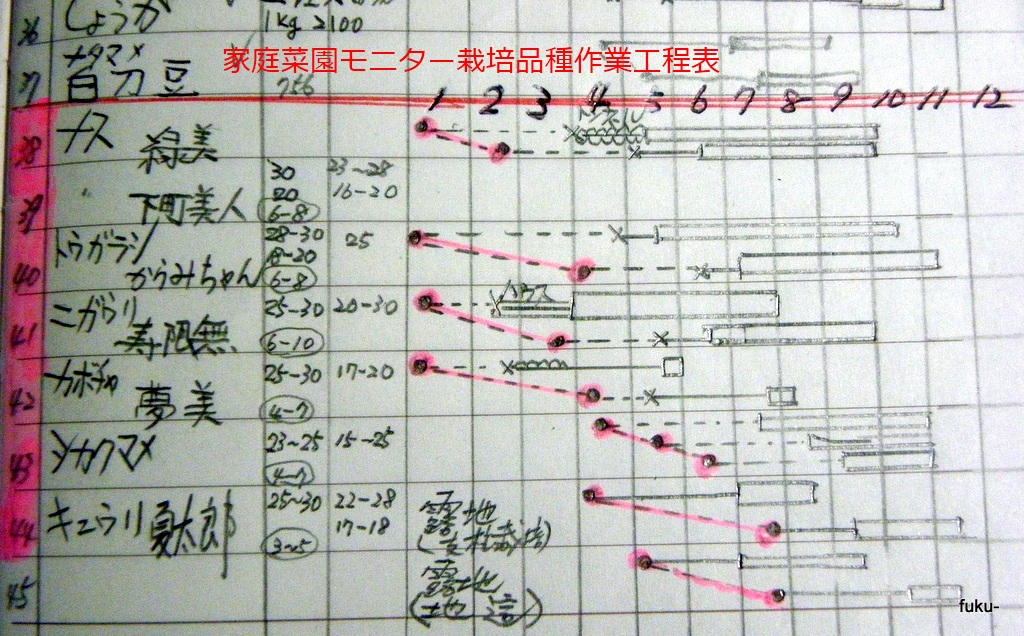 36 しょうが
1kg 2100
家庭菜園モニター栽培品種作業工程表
37 ナタマメ
白刀豆
1 2 3 4 5 6 7 8 9 10 11 12
38 ナス 緑美
トンネル
30 23~28
20 16-20
39 〃 下町美人 6-8
40 トウガラシ 28-30 25
からみちゃん 6-8
41 ニガウリ 25-30 20-30 ハウス
寿限無 6-10
42 カボチャ 25-30 17-20
夢美 4-7
43 シカクマメ 23~25 15-25
4-7
44 キュウリ 夏太郎 25~30 22-28 露地
17-18 (支柱栽培)
3~5
45 露地
(地這)
fuku-